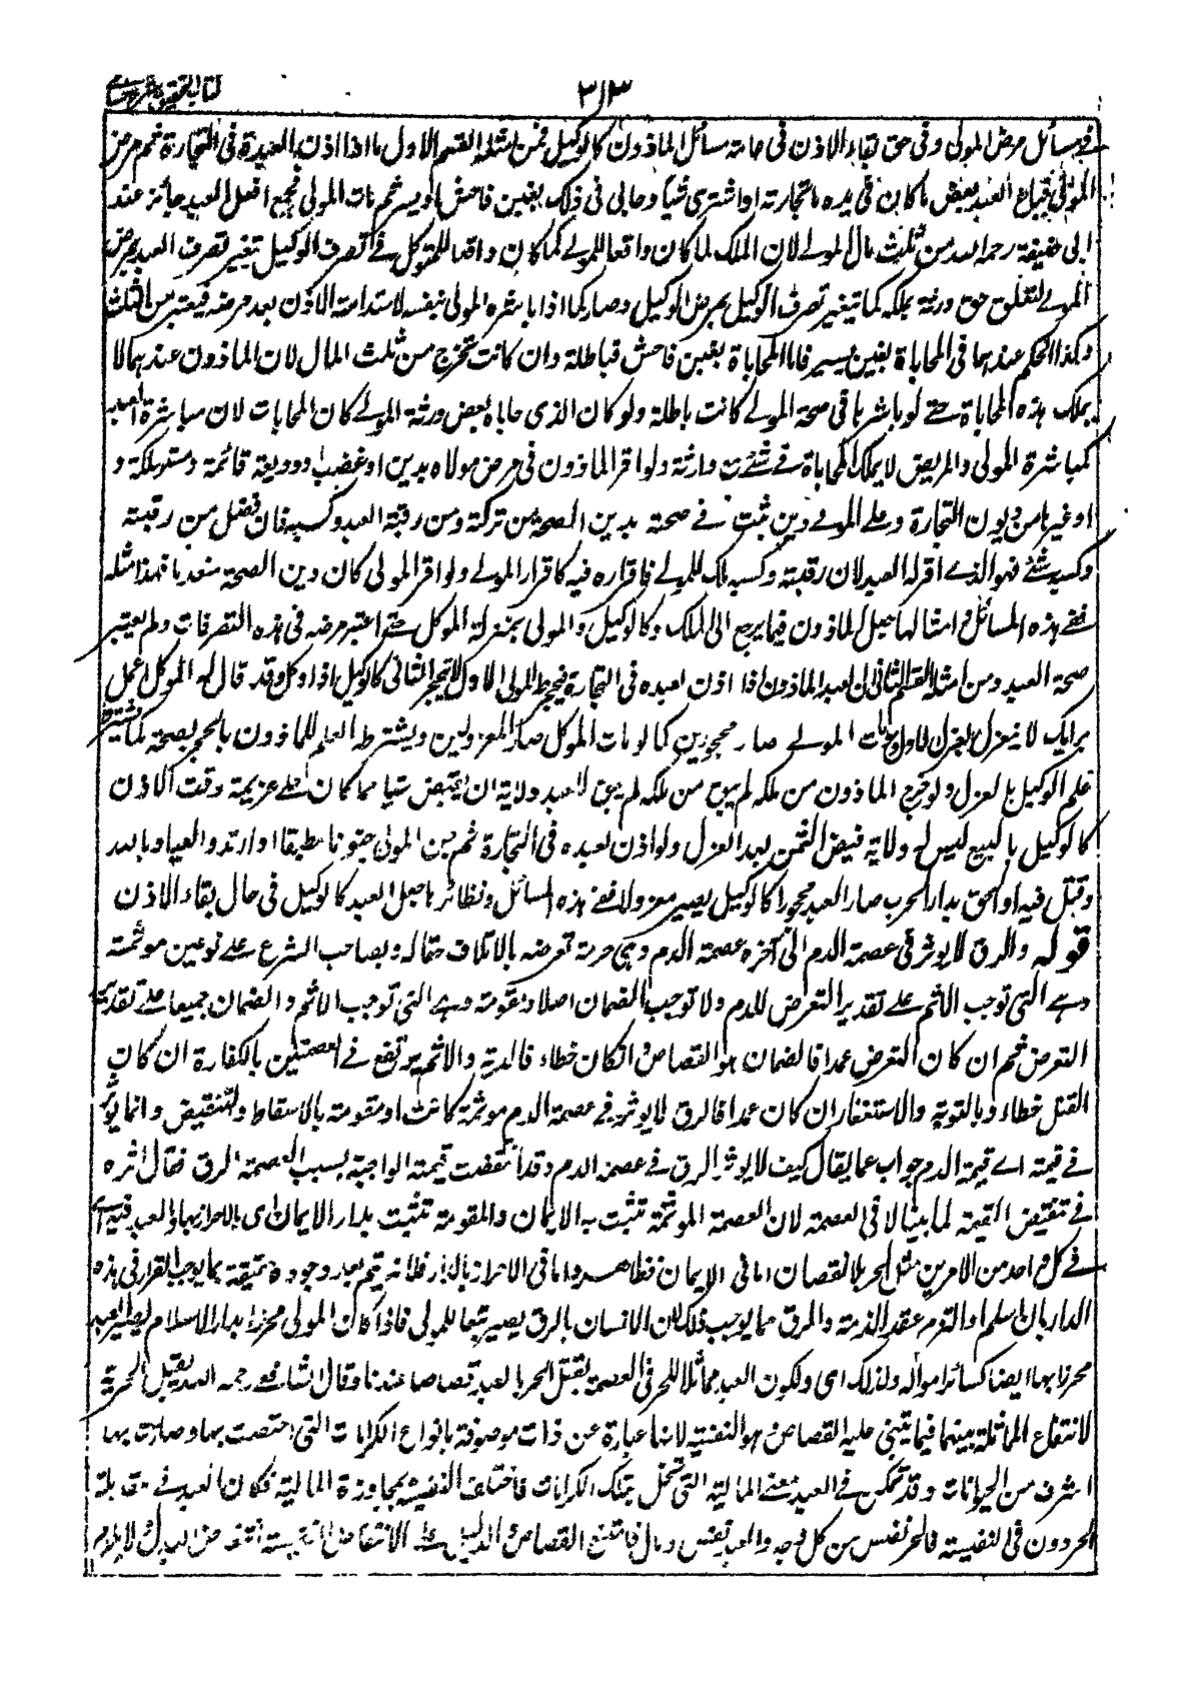 كتاب التحقيق شرح حسامي
٣١٣
في مسائل مرض المولى وفي حق بقاء الاذن في عامة مسائل الماذون كالوكيل فمن امثلة القسم الاول ما اذا اذن لعبده في التجارة ثم مرض
المولى فباع العبد بعض ما كان في يده من تجارته او اشترى شيأ وحابى في ذلك بغبن فاحش او يسير ثم مات المولى فجميع ما فعل العبد جائز عند
ابى حنيفة رحمه الله من ثلث مال المولى لان الملك لما كان واقعا للمولى كما كان واقعا للموكل في تصرف الوكيل تغير تصرف العبد بمرض
المولى لتعلق حق ورثة بملكه كما يتغير تصرف الوكيل بمرض الموكيل وصار كما اذا باشره المولى بنفسه لاستدامة الاذن بعد مرضه فيعتبر من الثلث
وكذا الحكم عندهما في المحاباة بغبن يسير فاما المحاباة بغبن فاحش فباطلة وان كانت تخرج من ثلث المال لان الماذون عندهما لا
يملك هذه المحاباة حتى لو باشرها في صحة المولى كانت باطلة ولو كان الذى حاباه بعض ورثة المولى كان المحابات لان مباشرة العبد
كمباشرة المولى والمريض لا يملك المحاباة في شئ من وارثه ولو اقر الماذون في مرض مولاه بدين او غصب او وديعة قائمة او مستهلكة و
او غيرها من ديون التجارة وعلى المولى دين ثبت في صحته بدين الصحة من تركته ومن رقبة العبد وكسبه فان فضل من رقبته
وكسبه شئ فهو الذى اقر له العبد لان رقبته وكسبه ملك للمولى فاقراره فيه كاقرار المولى ولو اقر المولى كان دين الصحة مقدما فهذا مثله
ففى هذه المسائل و امثالها جعل الماذون فيما يرجع الى الملك كالوكيل والمولى بمنزلة الموكل حتى اعتبر مرضه في هذه التصرفات ولم يعتبر
صحة العبد ومن امثلة القسم الثانى ان العبد الماذون اذا اذن لعبده في التجارة فحجر المولى الاول لا ينحجر الثانى كالوكيل اذا وكل وقد قال له الموكل اعمل
برايك لا ينعزل بعزل الاول ولو مات المولى صار محجورين كما لو مات الموكل صارا معزولين ويشترط العلم للماذون بالحجر لصحته كما يشترط
علم الوكيل بالعزل ولو خرج الماذون من ملكه لم يبق من ملكه لم يبق للعبد ولاية ان يقبض شيأ مما كان على غريمه وقت الاذن
كالوكيل بالبيع ليس له ولاية قبض الثمن بعد العزل ولو اذن لعبده في التجارة ثم جن المولى جنونا مطبقا او ارتد والعياذ بالله
وقتل فيه او لحق بدار الحرب صار العبد محجورا كالوكيل يصير معزولا ففى هذه المسائل ونظائرها جعل العبد كالوكيل في حال بقاء الاذن
قوله والرق لا يوثر في عصمة الدم الى آخره عصمة الدم وهي حرمة تعرضه بالاتلاف حقا له وبصاحب الشرع على نوعين موثمة
وهى التى توجب الاثم على تقدير التعرض للدم ولا توجب الضمان اصلا ومقومة وهى التى توجب الاثم والضمان جميعا على تقدير
التعرض ثم ان كان التعرض عمدا فالضمان هو القصاص وان كان خطاء فالدية والاثم يرتفع في العصمتين بالكفارة ان كان
القتل خطاء وبالتوبة والاستغفار ان كان عمدا فالرق لا يوثر في عصمة الدم موثمة كانت او مقومة بالاسقاط والتنقيص وانما يوثر
في قيمته اى قيمة الدم جواب عما يقال كيف لا يوثر الرق في عصمة الدم وقد انتقصت قيمته الواجبة بسبب العصمة بالرق فقال اثره
في تنقيص القيمة لما بينا لا في العصمة لان العصمة الموثمة تثبت بالايمان والمقومة تثبت بدار الايمان اى بالاحراز بها والعبد فيه
في كل واحد من الامرين مثل الحر بلا نقصان اما في الايمان فظاهر واما في الاحراز بالدار فلانه يتم بعد وجوده حقيقة بما يوجب القرار في هذه
الدار بان اسلم او التزم عقد الذمة والرق مما يوجب ذلك لان الانسان بالرق يصير تبعا للمولى فاذا كان المولى محرزا بدار الاسلام يصير العبد
محرزا بها ايضا كسائر امواله ولذلك اى ولكون العبد مماثلا للحر في العصمة يقتل الحر بالعبد قصاصا عندنا وقال الشافعى رحمه الله لا يقتل الحر به
لانتفاء المماثلة بينهما فيما يبتنى عليه القصاص وهو النفسية لانها عبارة عن ذات موصوفة بانواع الكرامات التى اختصت بها وصارت بها
اشرف من الحيوانات وقد تمكن في العبد معنى المالية التى تخل بتلك الكرامات فاختلف النفسية بمجاوزة المالية فكان العبد في مقابلة
الحر دون في النفسية فالحر نفس من كل وجه والعبد نفس ومال فامتنع القصاص والدليل على الانتقاص